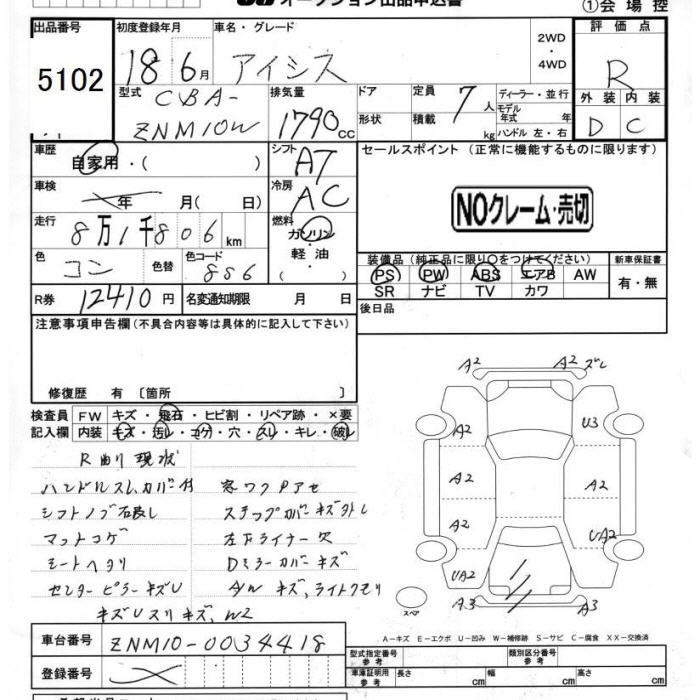 オークション出品申込書
①会場控
出品番号 初度登録年月 車名・グレード 2WD・4WD 評価点
5102 18年6月 アイシス R
型式 CBA-ZNM10W 排気量 1790cc ドア形状 定員 7人 積載 kg ディーラー・並行 モデル年式 年 ハンドル左・右 外装 内装
D C
車歴 自家用・( ) シフト AT セールスポイント (正常に機能するものに限ります)
車検 年 月( 日) 冷房 AC
NOクレーム・売切
走行 8万1千806km 燃料 ガソリン・軽油・( )
色 コン 色替 色コード 8S6 装備品(純正品に限り○をつけてください) 新車保証書
PS PW ABS エアB AW 有・無
SR ナビ TV カワ
R券 12410円 名変通知期限 月 日 後日品
注意事項申告欄(不具合内容等は具体的に記入して下さい)
修復歴 有〔箇所 〕
検査員記入欄 FW キズ・飛石・ヒビ割・リペア跡・×要
内装 キズ・汚レ・コゲ・穴・スレ・キレ・破レ
R曲り現状
ハンドルスレ,カバー付
シフトノブ石感し
マットコゲ 左下ライナー欠
シートヘタリ Dミラーカバーキズ
センターピラーキズU ダル キズ,ライトクモリ
キズUスリキズ,W2
A2 A2 ズレ
A2 U3
A2 A2
A2 UA2
UA2
A3 A3
スペア
A-キズ E-エクボ U-凹み W-補修跡 S-サビ C-腐食 XX-交換済
車台番号 ZNM10-0034418 型式指定番号 参考 類別区分番号 参考
登録番号 車庫証明用 参考 長さ cm 幅 cm 高さ cm